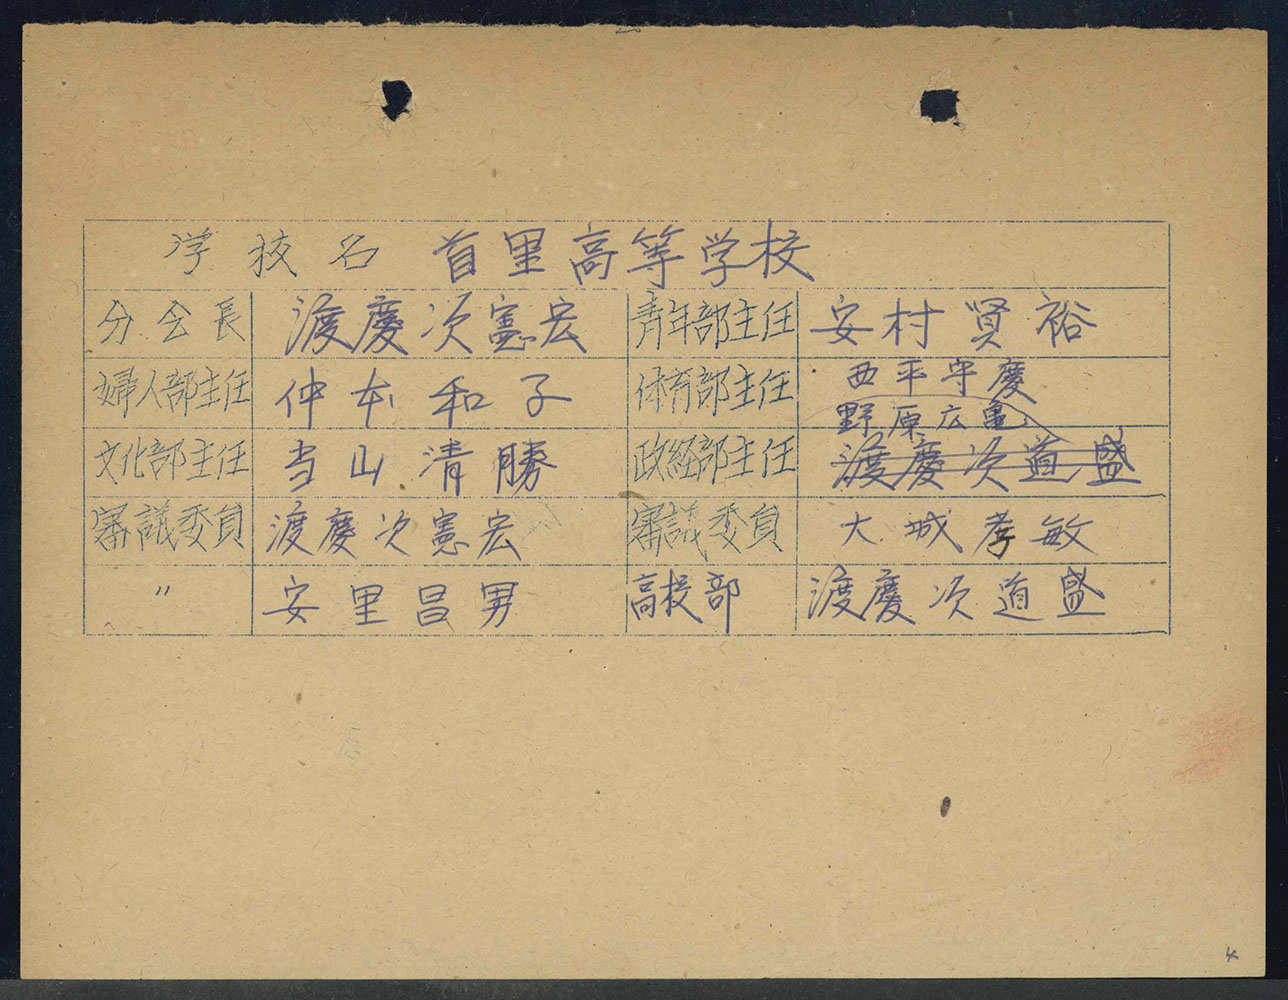 学校名 首里高等学校
分会長 渡慶次憲宏 青年部主任 安村賢裕
婦人部主任 仲本和子 体育部主任 西平守慶
文化部主任 当山清勝 政経部主任 野原広亀
渡慶次道盛
審議委員 渡慶次憲宏 審議委員 大城孝敏
〃 安里昌男 高校部 渡慶次道盛
4